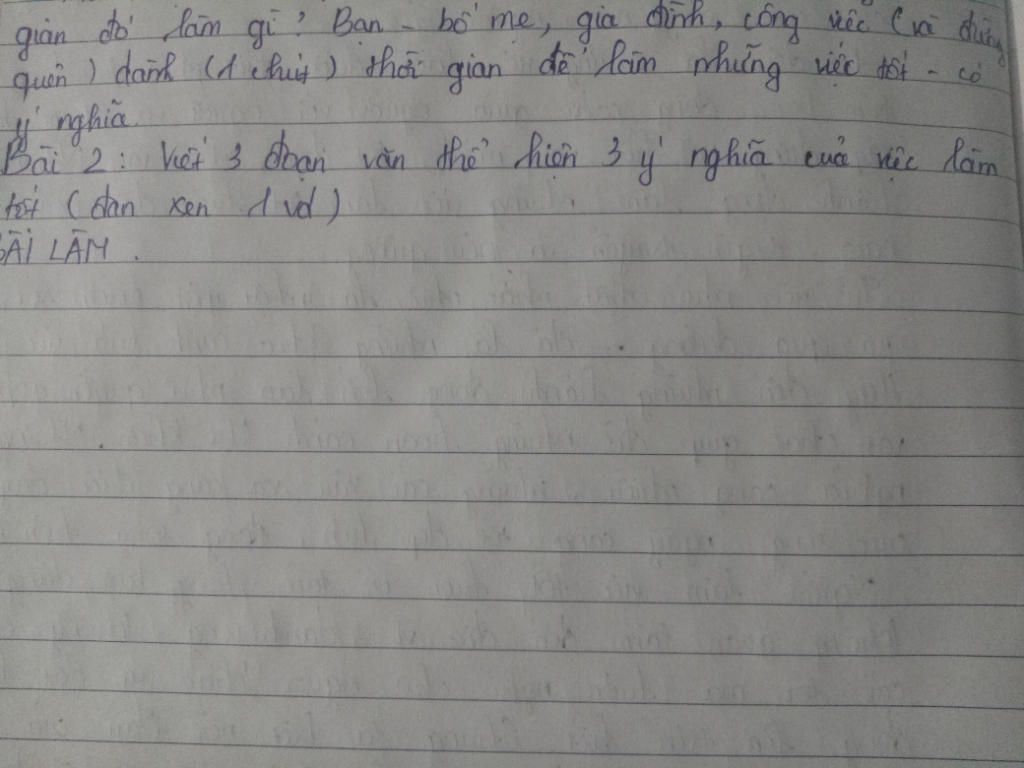 gian đó làm gì? Bạn - bố mẹ, gia đình, công việc (và đừng
quên) dành (1 chút) thời gian để làm những việc tốt - có
ý nghĩa.
Bài 2: Viết 3 đoạn văn thể hiện 3 ý nghĩa của việc làm
tốt (đan xen 1 vd)
BÀI LÀM.